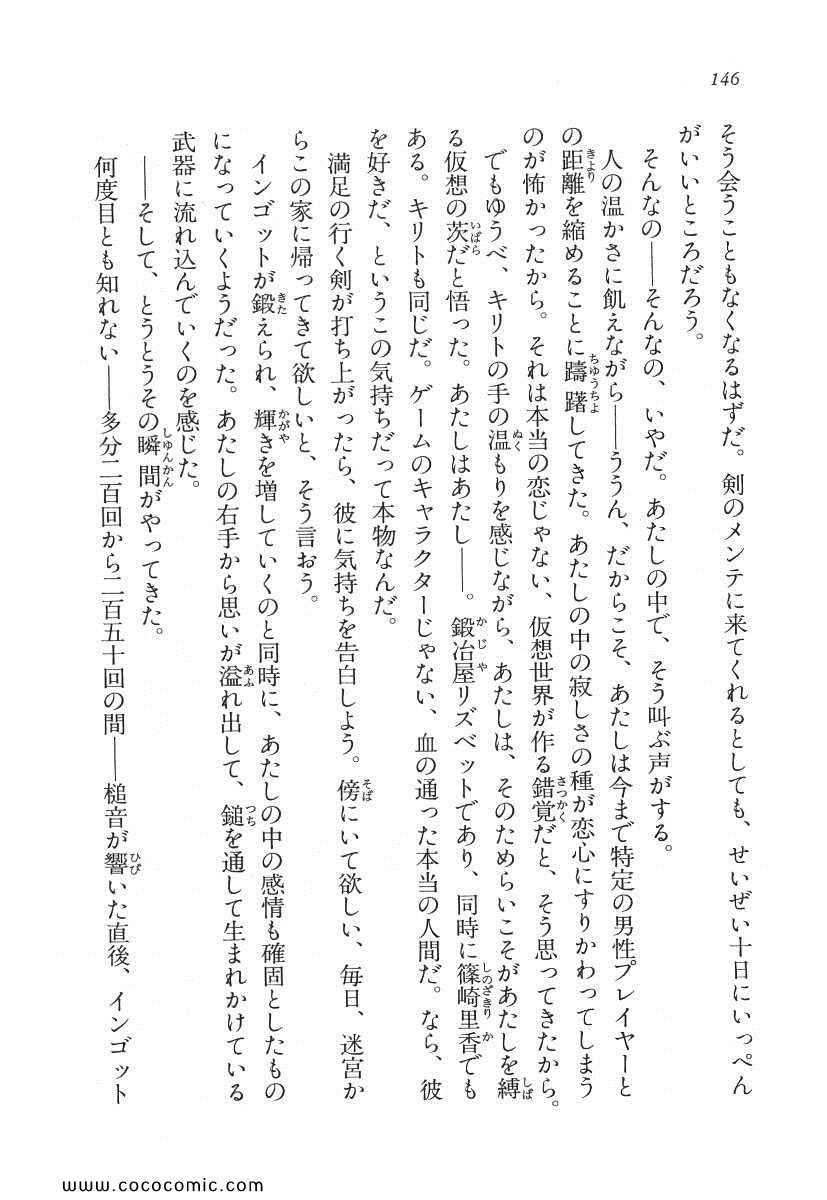 146
そう会うこともなくなるはずだ。剣のメンテに来てくれるとしても、せいぜい十日にいっぺん
がいいところだろう。
そんなの――そんなの、いやだ。あたしの中で、そう叫ぶ声がする。
人の温かさに飢えながら――ううん、だからこそ、あたしは今まで特定の男性プレイヤーと
の距離を縮めることに躊躇してきた。あたしの中の寂しさの種が恋心にすりかわってしまう
のが怖かったから。それは本当の恋じゃない、仮想世界が作る錯覚だと、そう思ってきたから。
でもゆうべ、キリトの手の温もりを感じながら、あたしは、そのためらいこそがあたしを縛
る仮想の茨だと悟った。あたしはあたし――。鍛冶屋リズベットであり、同時に篠崎里香でも
ある。キリトも同じだ。ゲームのキャラクターじゃない、血の通った本当の人間だ。なら、彼
を好きだ、というこの気持ちだって本物なんだ。
満足の行く剣が打ち上がったら、彼に気持ちを告白しよう。傍にいて欲しい、毎日、迷宮か
らこの家に帰ってきて欲しいと、そう言おう。
インゴットが鍛えられ、輝きを増していくのと同時に、あたしの中の感情も確固としたもの
になっていくようだった。あたしの右手から思いが溢れ出して、鎚を通して生まれかけている
武器に流れ込んでいくのを感じた。
――そして、とうとうその瞬間がやってきた。
何度目とも知れない――多分二百回から二百五十回の間――槌音が響いた直後、インゴット
www.cococomic.com